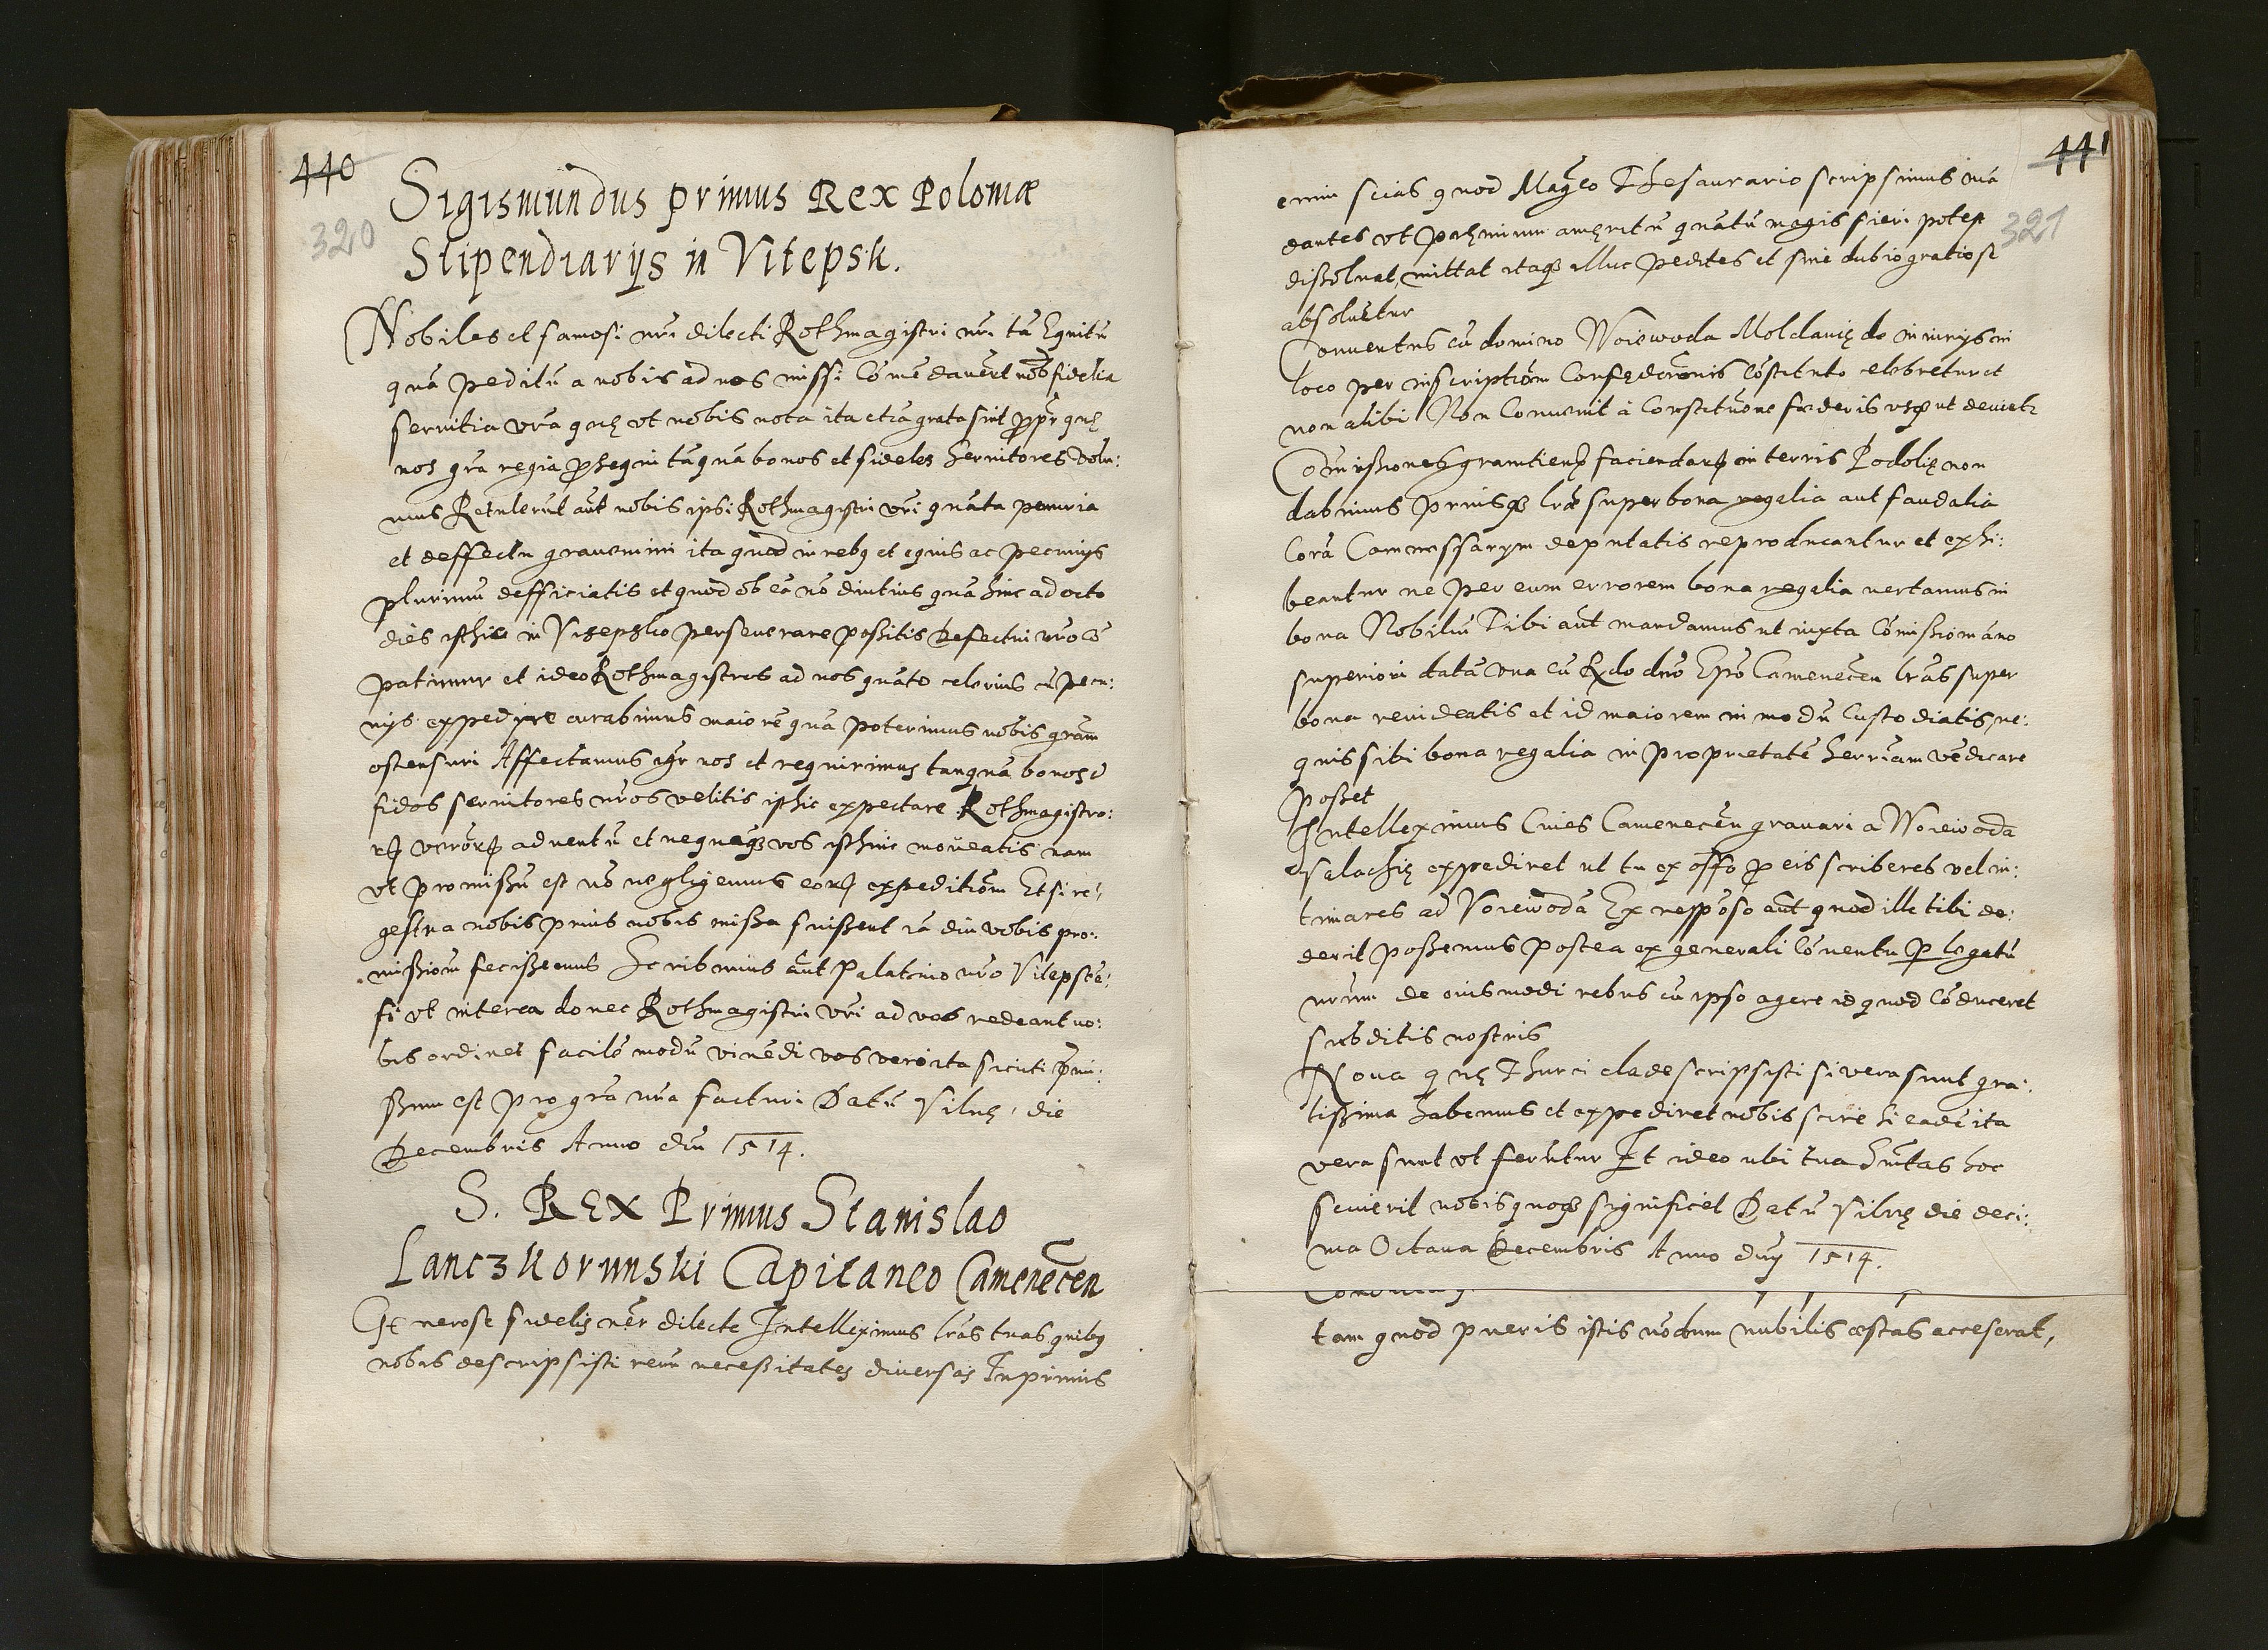 440
320
Sigismundus primus Rex Poloniæ
Stipendiarijs in Vitepsk.
Nobiles et famosi nr̃i dilecti Rothmagistri nr̃i tã Equitũ
quã peditũ a nobis ad nos missi Cõmẽdauerũt nob̃ fidelia
seruitia vr̃a quę ut nobis nota ita etiã grata sint ꝓpr̃ quę
nos gr̃a regia ꝓsequi tãquã bonos et fideles seruitores volu:
mus Retulerũt aũt nobis ipsi Rothmagistri vr̃i quãta penuria
et deffectu grauemini ita quod in rebq et equis ac pecunijs
plurimũ defficiatis et quod ob eã nõ diutius quã hinc ad octo
dies isthic in Vitepsko perseuerare poßitis Defectui vr̃o cõ
patimur et ideo Rothmagistros ad nos quãto celerius cũ pecu:
nijs expedire curabimus maiorẽ quã poterimus vobis gram̃
ostensuri Affectamus igr̃ nos et requirimus tanquã bonos et
fidos seruitores nr̃os velitis isthic expectare Rothmagistro:
rꝝ vr̃orꝝ aduentũ et nequaqꝫ vos isthinc moueatis nam
ut promißũ est nõ negligemus eorꝝ expeditiom̃ Et si re:
gestra nobis prius nobis mißa fuißent iã diu vobis pro:
mißiom̃ fecißemus Scribimus aũt Palatino nr̃o Vitepstẽ:
si ut interea donec Rothmagistri vr̃i ad vos redeant uo:
bis ordinet facilẽ modũ viuẽdi vos vero ita sicuti ꝓmi:
ßum est pro gr̃a nr̃a facturi Datũ Vilnę, die
Decembris Anno dnı̃ 1514.
S. Rex Primus Stanislao
Lanczkorunski Capitaneo Camenecẽn
Generose fidelis nr̃ dilecte Intelleximus lr̃as tuas quibq
nobis descripsisti rerũ neceßitates diuersas Inprimis
441
321
enim scias quod Magco Thesaurario scripsimus mã
dantes ut quãtũ magis fieri potest
dißoluat, mittat itaqꝫ illuc pedites et sine dubio gratiose
absoluẽtur
Conuentus cũ domino Woiewoda Moldauię de iniurijs in
loco per inscriptiom̃ Confęderom̃is cõstituto celebretur et
non alibi Non Conuenit à Constituõne fæderis usqꝫ ut deuietr̃
Comißiones faciendarꝝ in terris Podolię non
dabimus priusqꝫ lr̃æ super bona regalia aut feudalia
Corã Commissarijs deputatis reproducantur et exhi:
beantur ne per eum errorem bona regalia uertamus in
bona Nobiliũ Tibi aũt mandamus ut iuxta Cõmißiom̃
superiori datã una cũ Rx̃do dño Ep̃o Camenecẽn lr̃as super
bona reuideatis et id maiorem in modũ Custodiatis, ne:
quis sibi bona regalia in proprietatẽ uẽdicare
poßet
Intelleximus Ciues Camenecẽn grauari a Woiewoda
Valachię expediret ut tu ex offo ꝓ eis scriberes vel in:
timares ad Voiewodã Ex respõso aũt quod ille tibi de:
derit poßemus postea ex generali Cõuentu ꝑ legatũ
nr̃um de eiusmodi rebus cũ ipso agere id quod Cõduceret
subditis nostris
Noua quę Thurci clade scripsisti si vera sunt gra:
tißima habemus et expediret nobis scire si eadẽ ita
vera sunt ut ferũtur Et ideo ubi tua Sıñtas hoc
sciuerit nobis quoqꝫ significet Datũ Vilnę die deci:
ma Octaua Decembris Anno dñj 1514.
tam quod pueris istis nõdum nubilis æstas acceserat,